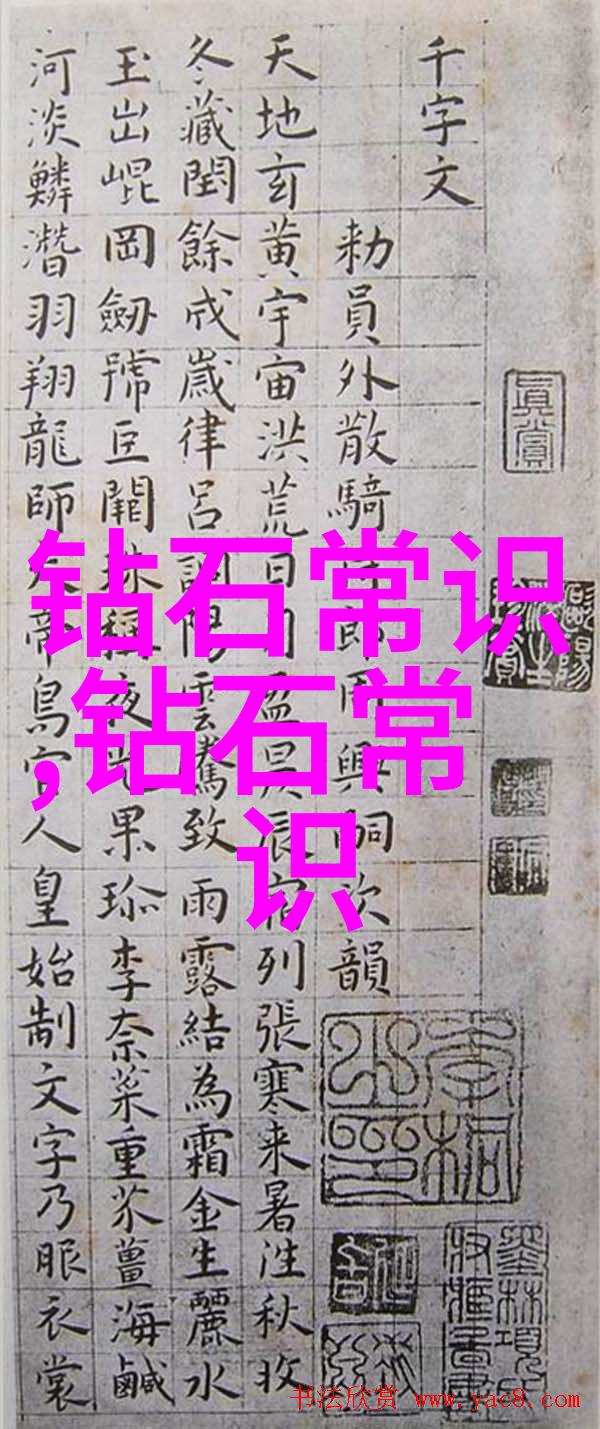 千字文
勑員外散騎侍郎周興嗣次韻
天地玄黄宇宙洪荒日月盈昃辰宿列張寒来暑往秋收
冬藏閏餘成歲律呂調陽雲騰致雨露結為霜金生麗水
玉出崐岡劒號巨闕珠稱夜光果珎李柰菜重芥薑海鹹
河淡鱗潛羽翔龍師火帝鳥官人皇始制文字乃服衣裳
真賞
钻石常识
,钻石常
识
书法欣赏 www.yac8.com